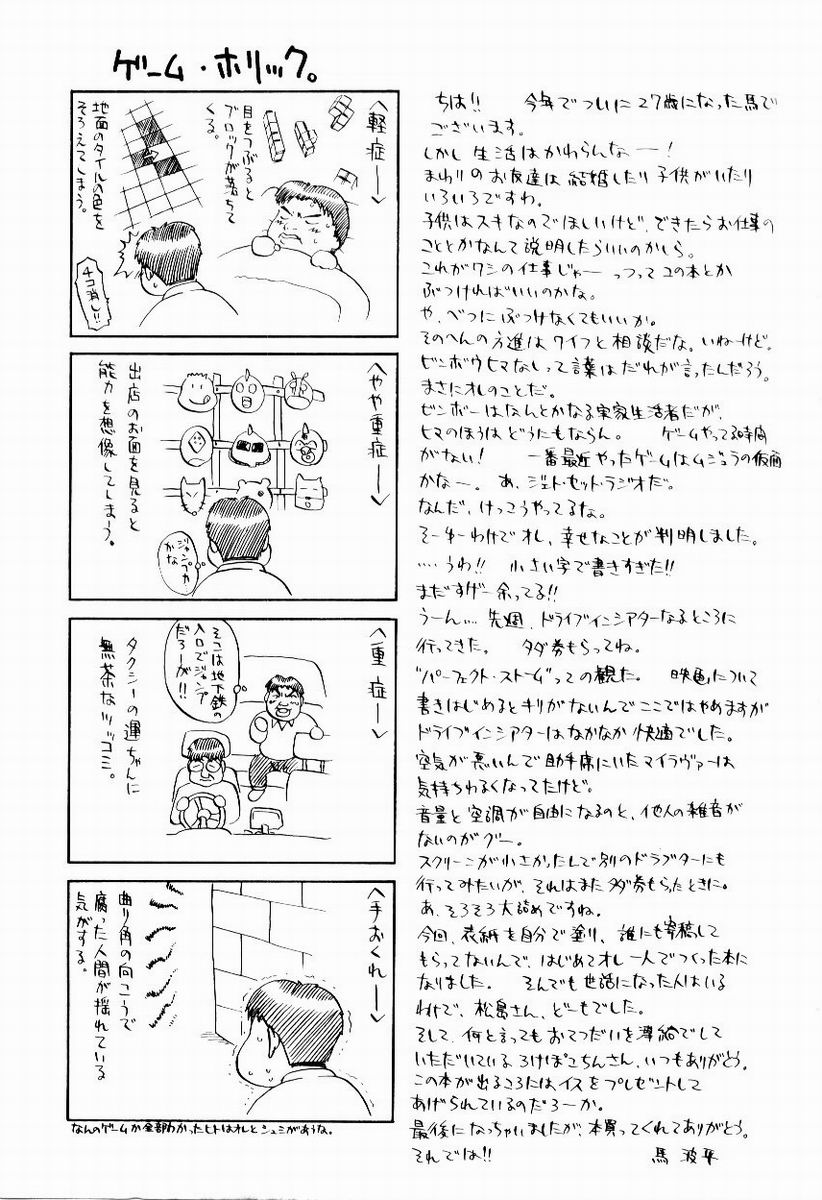 ゲーム・ホリック。
〈軽症〉
目をつぶると
ブロックが落ちて
くる。
地面のタイルの色を
そろえてしまう。
4コ消し!!
〈やや重症〉
出店のお面を見ると
能力を想像してしまう。
ジャンプカかな
〈重症〉
そこは地下鉄の
入口でジャンプ
だろーが!!
タクシーの運ちゃんに
無茶なツッコミ。
〈手おくれ〉
曲り角の向こうで
腐った人間が揺れている
気がする。
なんのゲームか全部わかったヒトはオレとシュミがあうな。
ちは!! 今年でついに27歳になった馬で
ございます。
しかし生活はかわらんなー!
まわりのお友達は結婚したり子供がいたり
いろいろですわ。
子供はスキなのでほしいけど、できたらお仕事の
こととかなんて説明したらいいのかしら。
これがワシの仕事じゃー っつってコの本とか
ぶつければいいのかな。
や、べつにぶつけなくてもいいか。
そのへんの方進はワイフと相談だな。いねーけど。
ビンボウヒマなしって言葉はだれが言ったんだろう。
まさにオレのことだ。
ビンボーはなんとかなる実家生活者だが、
ヒマのほうはどうにもならん。 ゲームやってる時間
がない! 一番最近やったゲームはムジュラの仮面
かなー。 あ、ジェト・セット・ラジオだ。
なんだ、けっこうやってるな。
そーゆーわけでオレ、幸せなことが判明しました。
‥‥うわ!! 小さい字で書きすぎた!!
まだすげー余ってる!!
うーん… 先週、ドライブインシアターなるところに
行ってきた。 タダ券もらってね。
"パーフェクト・ストーム"っての観た。 映画について
書きはじめるとキリがないんでここではやめますが
ドライブインシアターはなかなか快適でした。
空気が悪いんで助手席にいたマイラヴァーは
気持ちわるくなってたけど。
音量と空調が自由になるのと、他人の雑音が
ないのがグー。
スクリーンが小さかったしで別のドラブターにも
行ってみたいが、それはまたタダ券もらたときに。
あ、そろそろ大詰めですね。
今回、表紙を自分で塗り、誰にも寄稿して
もらってないんで、はじめてオレ一人でつくった本に
なりました。 そんでも世話になった人はいる
わけで、松島さん、どーもでした。
そして、何と言ってもおてつだいを薄給でして
いただいている ろけぽこちんさん、いつもありがとう。
この本が出るころにはイスをプレゼントして
あげられているのだろーか。
最後になっちゃいましたが、本買ってくれてありがとう。
それでは!! 馬 波平